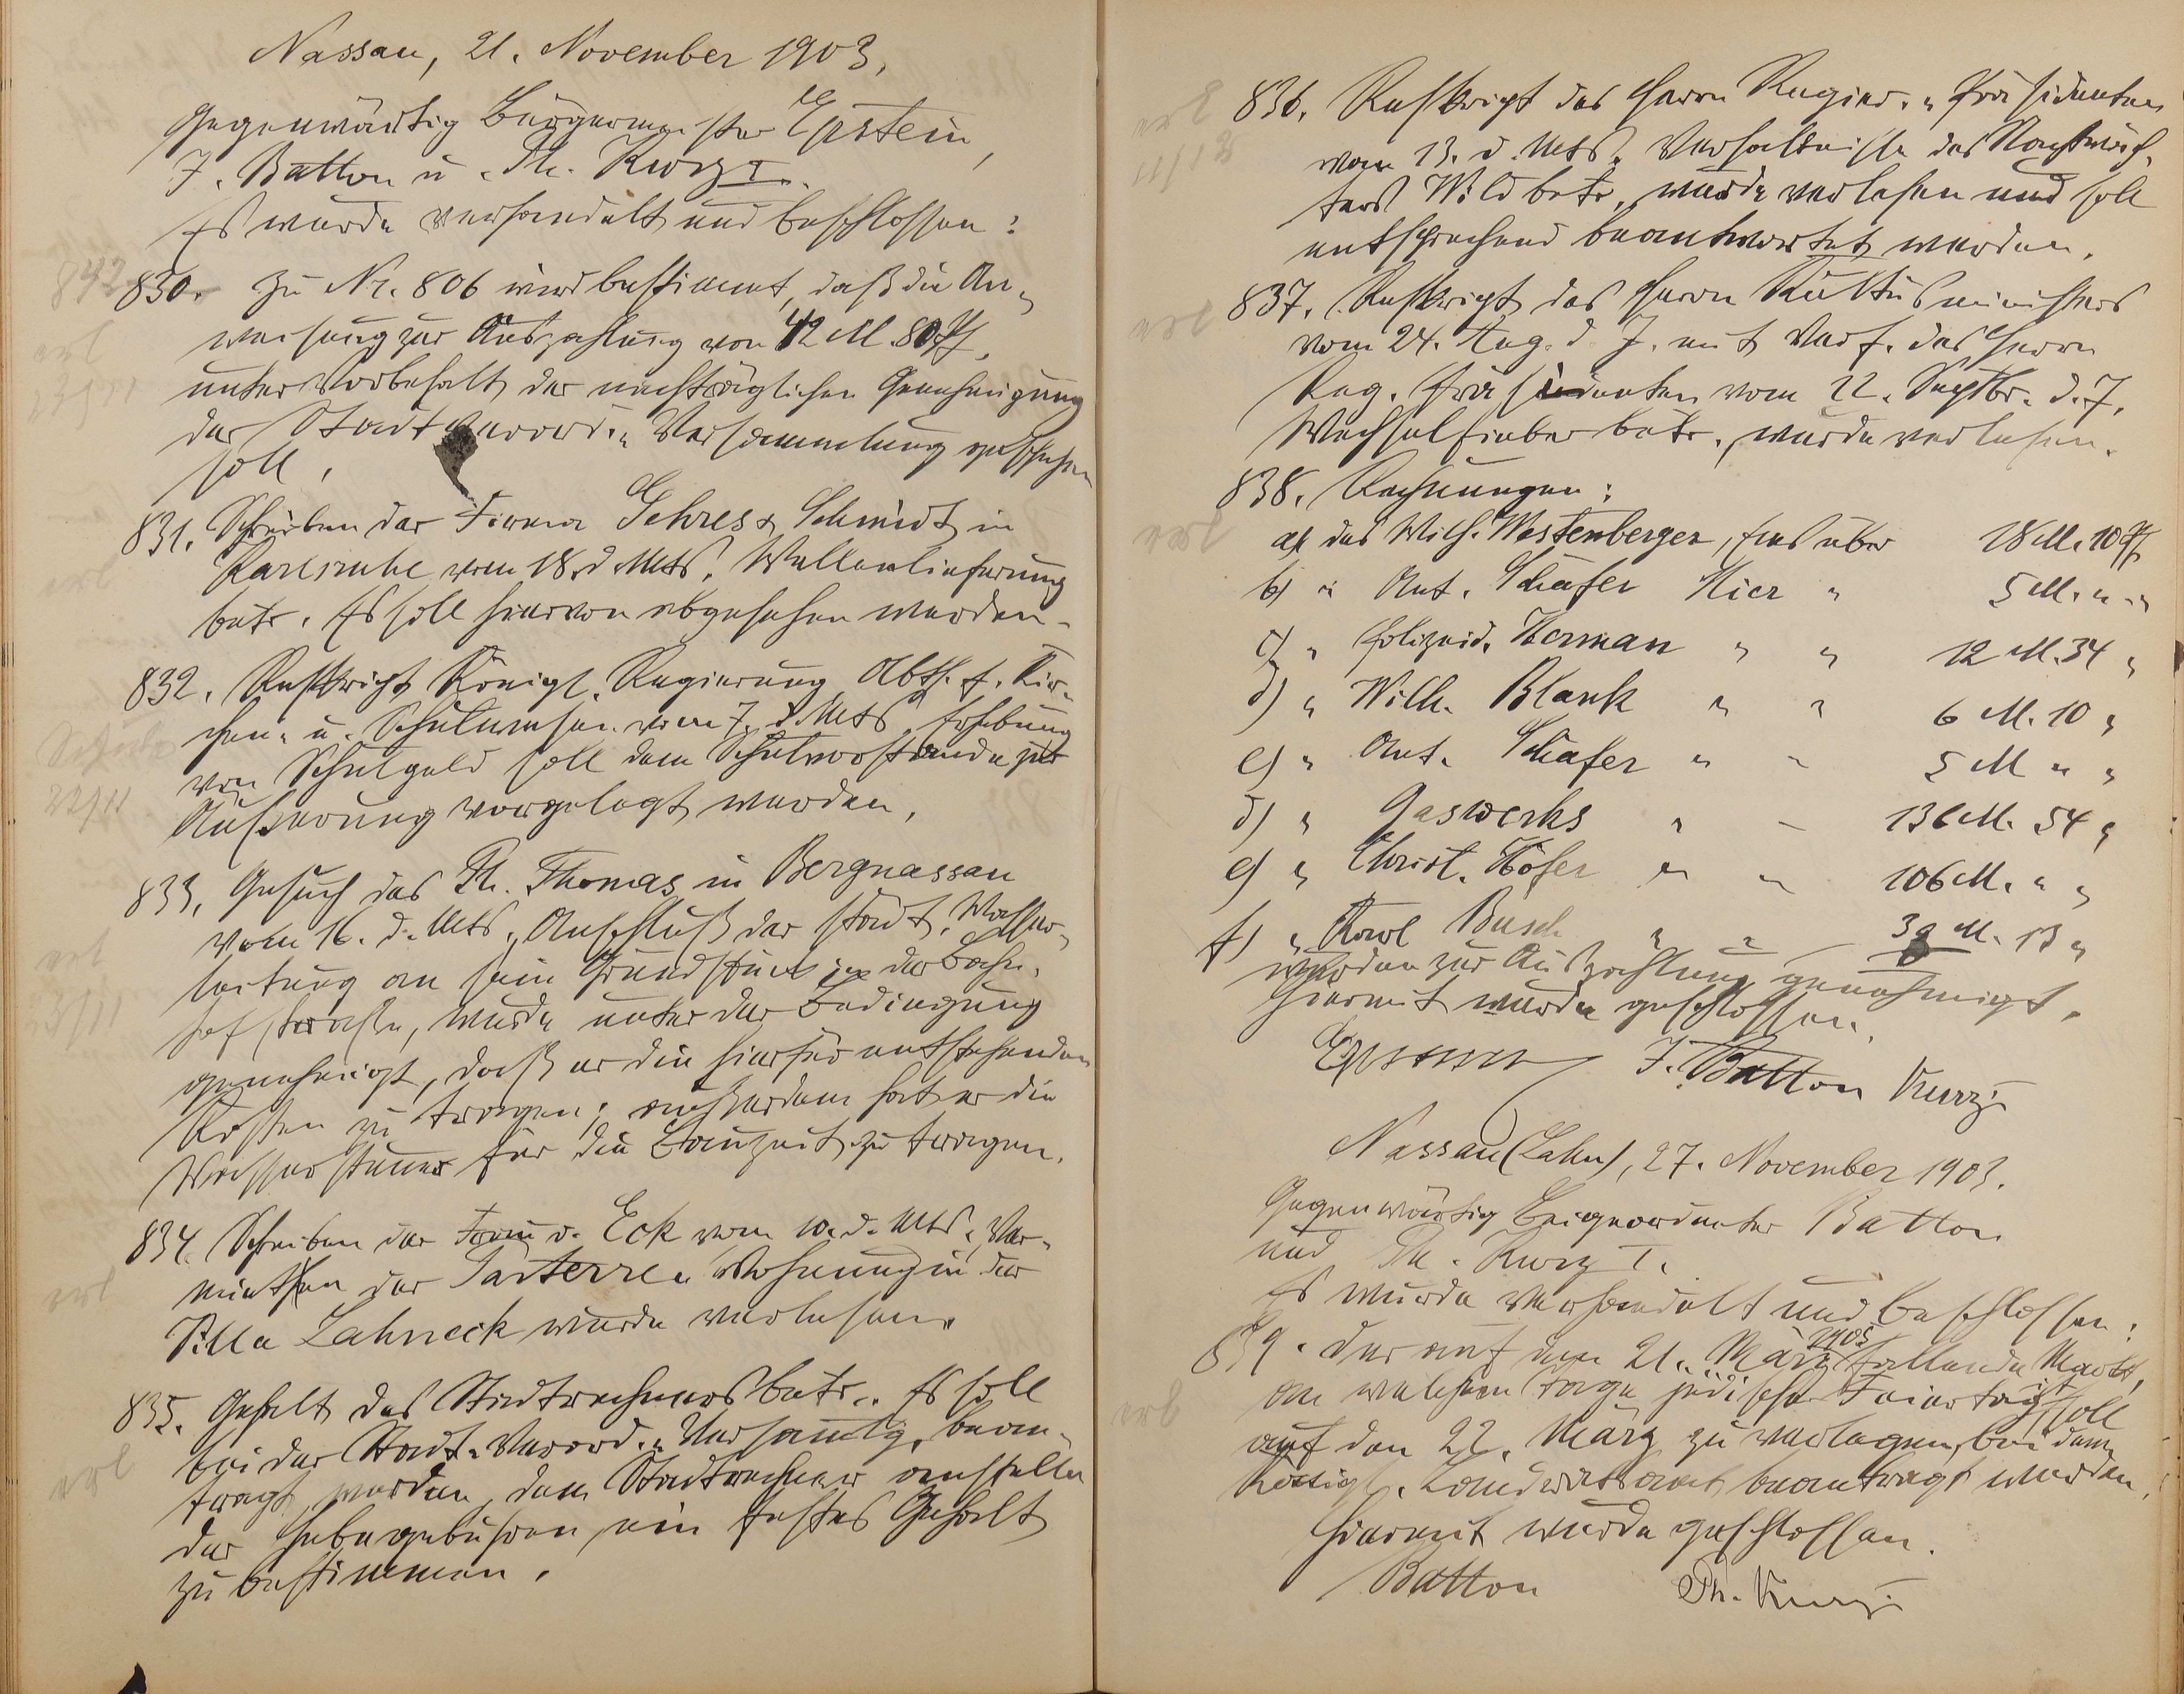 Nassau, 21. November 1903.
Gegenwärtig Bürgermeister Epstein,
J. Batton u. Ph. Kurz I.
Es wurde verhandelt und beschlossen:
842
830. Zu Nr. 806 wird bestimmt, daß die An-
erl
weisung zur Auszahlung von 42 M. 80 Pf.
23/11
unter Vorbehalt der nachträglichen Genehmigung
der Stadtverord.-Versammlung geschehen
soll.
831. Schreiben der Firma Gehres & Schmidt in
erl
Karlsruhe vom 18. d. Mts. Wellenlieferung
betr. Es soll hiervon abgesehen werden.
832. Reskript Königl. Regierung Abth. f. Kir-
chen- u. Schulwesen vom 7. d. Mts. Erhebung
Schule
von Schulgeld soll dem Schulvorstande zur
22/11
Äußerung vorgelegt werden.
833. Gesuch des Ph. Thomas in Bergnassau
vom 16. d. Mts. Anschluß der städt. Wasser-
erl
leitung an sein Grundstück in der Bahn-
3/11
hofstraße, wurde unter der Bedingung
genehmigt, daß er die hierfür entstehenden
Kosten zu tragen; außerdem hat er die
Wassersteuer für die Bauzeit zu tragen.
834. Schreiben der Frau v. Eck vom 10. d. Mts. Ver-
erl
miethen der Parterre-Wohnung in der
Villa Lahneck wurde verlesen.
835. Gehalt des Stadtrechners betr. Es soll
erl
bei der Stadt-Verord.-Versammlg. bean-
tragt werden, dem Stadtrechner anstelle
der Hebegebühren ein festes Gehalt
zu bestimmen.
erl
11/12
836. Reskript des Herrn Regier.-Präsidenten
vom 13. d. Mts. Verhältnisse des Nachtwäch-
ters Wild betr. wurde verlesen und soll
entsprechend beantwortet werden.
erl
837. Reskript des Herrn Kultusministers
vom 24. Aug. d. J. mit Verf. des Herrn
Reg. Präsidenten vom 22. Septbr. d. J.
Wechselfieber betr. wurde verlesen.
838. Rechnungen:
erl
a) des Wilh. Westenberger, Ems über 18 M. 10 Pf.
b) " Ant. Schäfer Hier " 5 M. " "
c) " Polizeid. Herman " " 12 M. 34 "
d) " Wilh. Blank " " 6 M. 10 "
e) " Ant. Schäfer " " 5 M " "
d) " Gaswerks " " 136 M. 54 "
e) " Christ. Höfer " " 106 M. " "
f) " Karl Busch " " 39 M. 13 "
werden zur Auszahlung genehmigt.
Hiermit wurde geschlossen.
Epstein J. Batton Kurz
Nassau (Lahn), 27. November 1903.
Gegenwärtig Beigeordneter Batton
und Ph. Kurz I.
Es wurde verhandelt und beschlossen:
1905
839. Der auf den 21. März fallende Markt,
erl
an welchem Tage jüdischer Feiertag ist, soll
auf den 22. März zu verlegen, bei dem
Königl. Landrathsamt beantragt werden.
Hiermit wurde geschlossen.
Batton Ph. Kurz